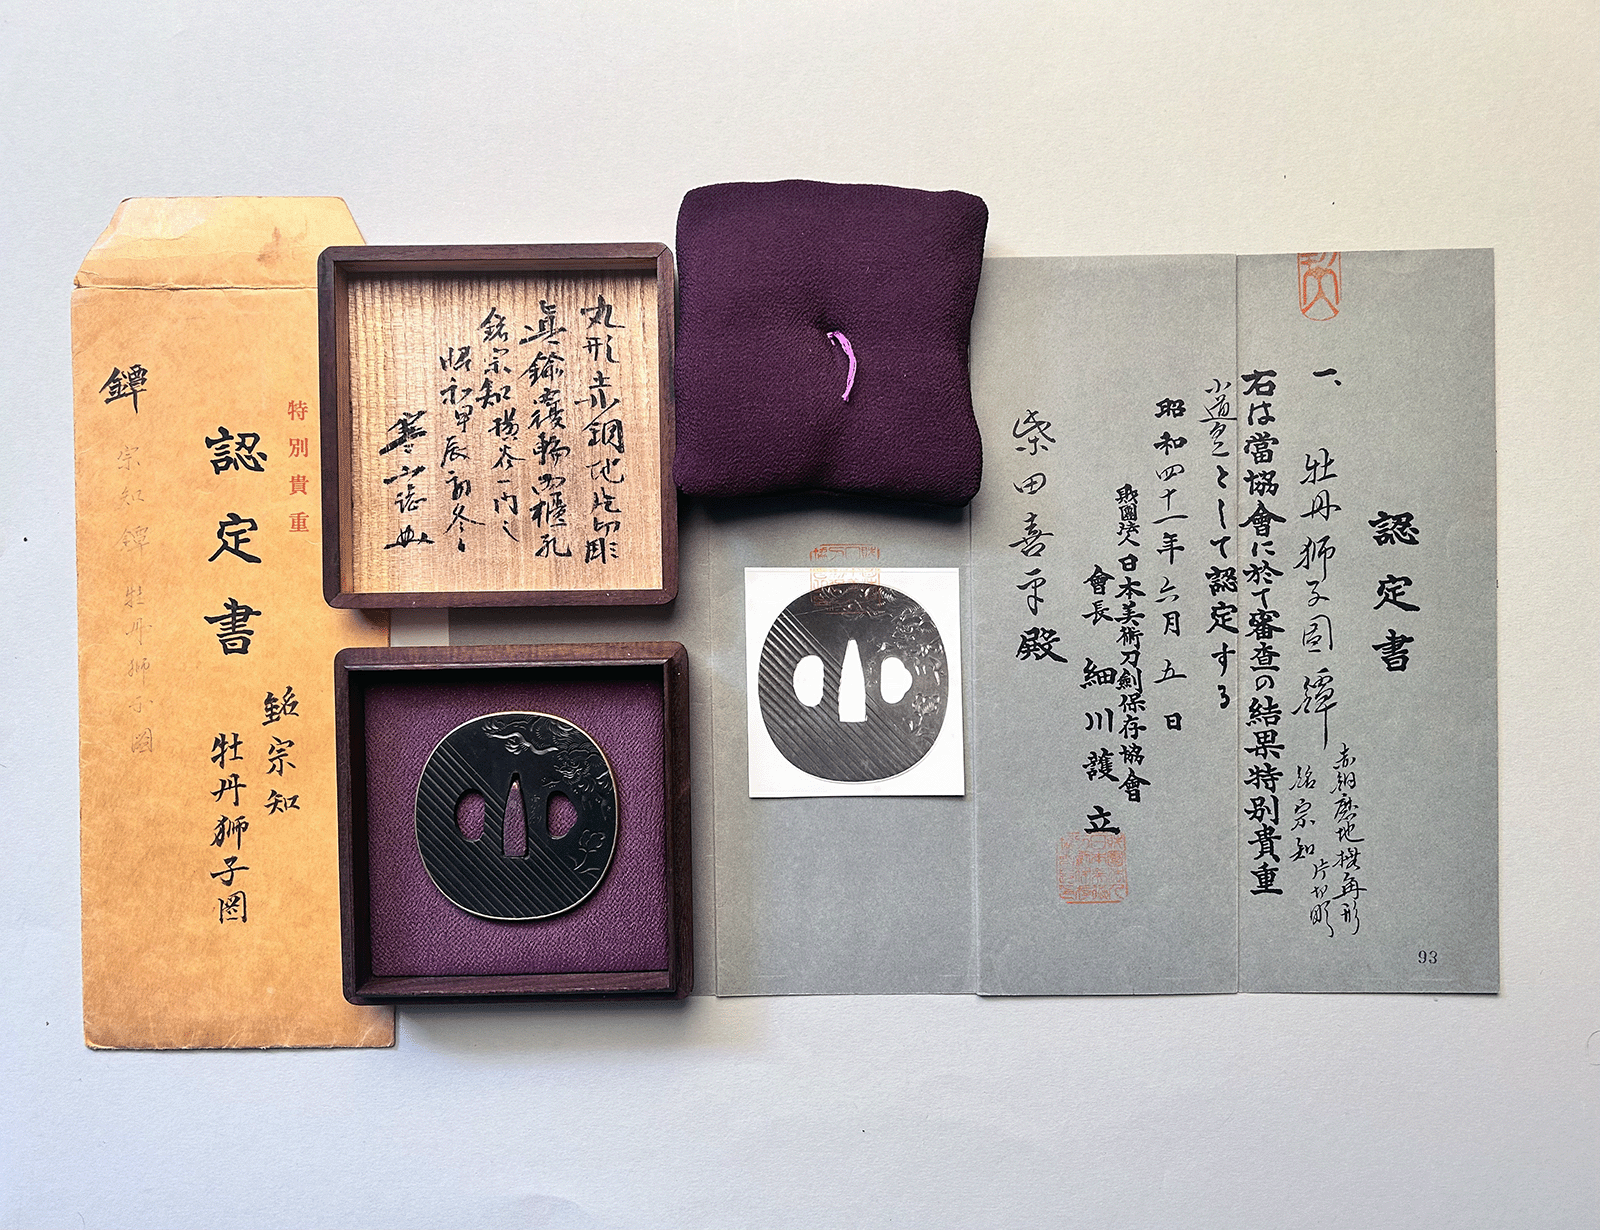 特別貴重
認定書
銘宗知
牡丹獅子図
鐔
宗知鐔 牡丹獅子図
丸形赤銅地片切彫
真鍮覆輪両櫃孔
銘宗知 横谷一門之
昭和甲辰初冬
寒山誌
認定書
一、牡丹獅子図鐔
赤銅磨地撫角形
銘宗知 片切彫
右は當協會に於て審査の結果特別貴重
小道具として認定する
昭和四十一年六月五日
財團法人日本美術刀劍保存協會
會長 細川護立
柴田喜平殿
93